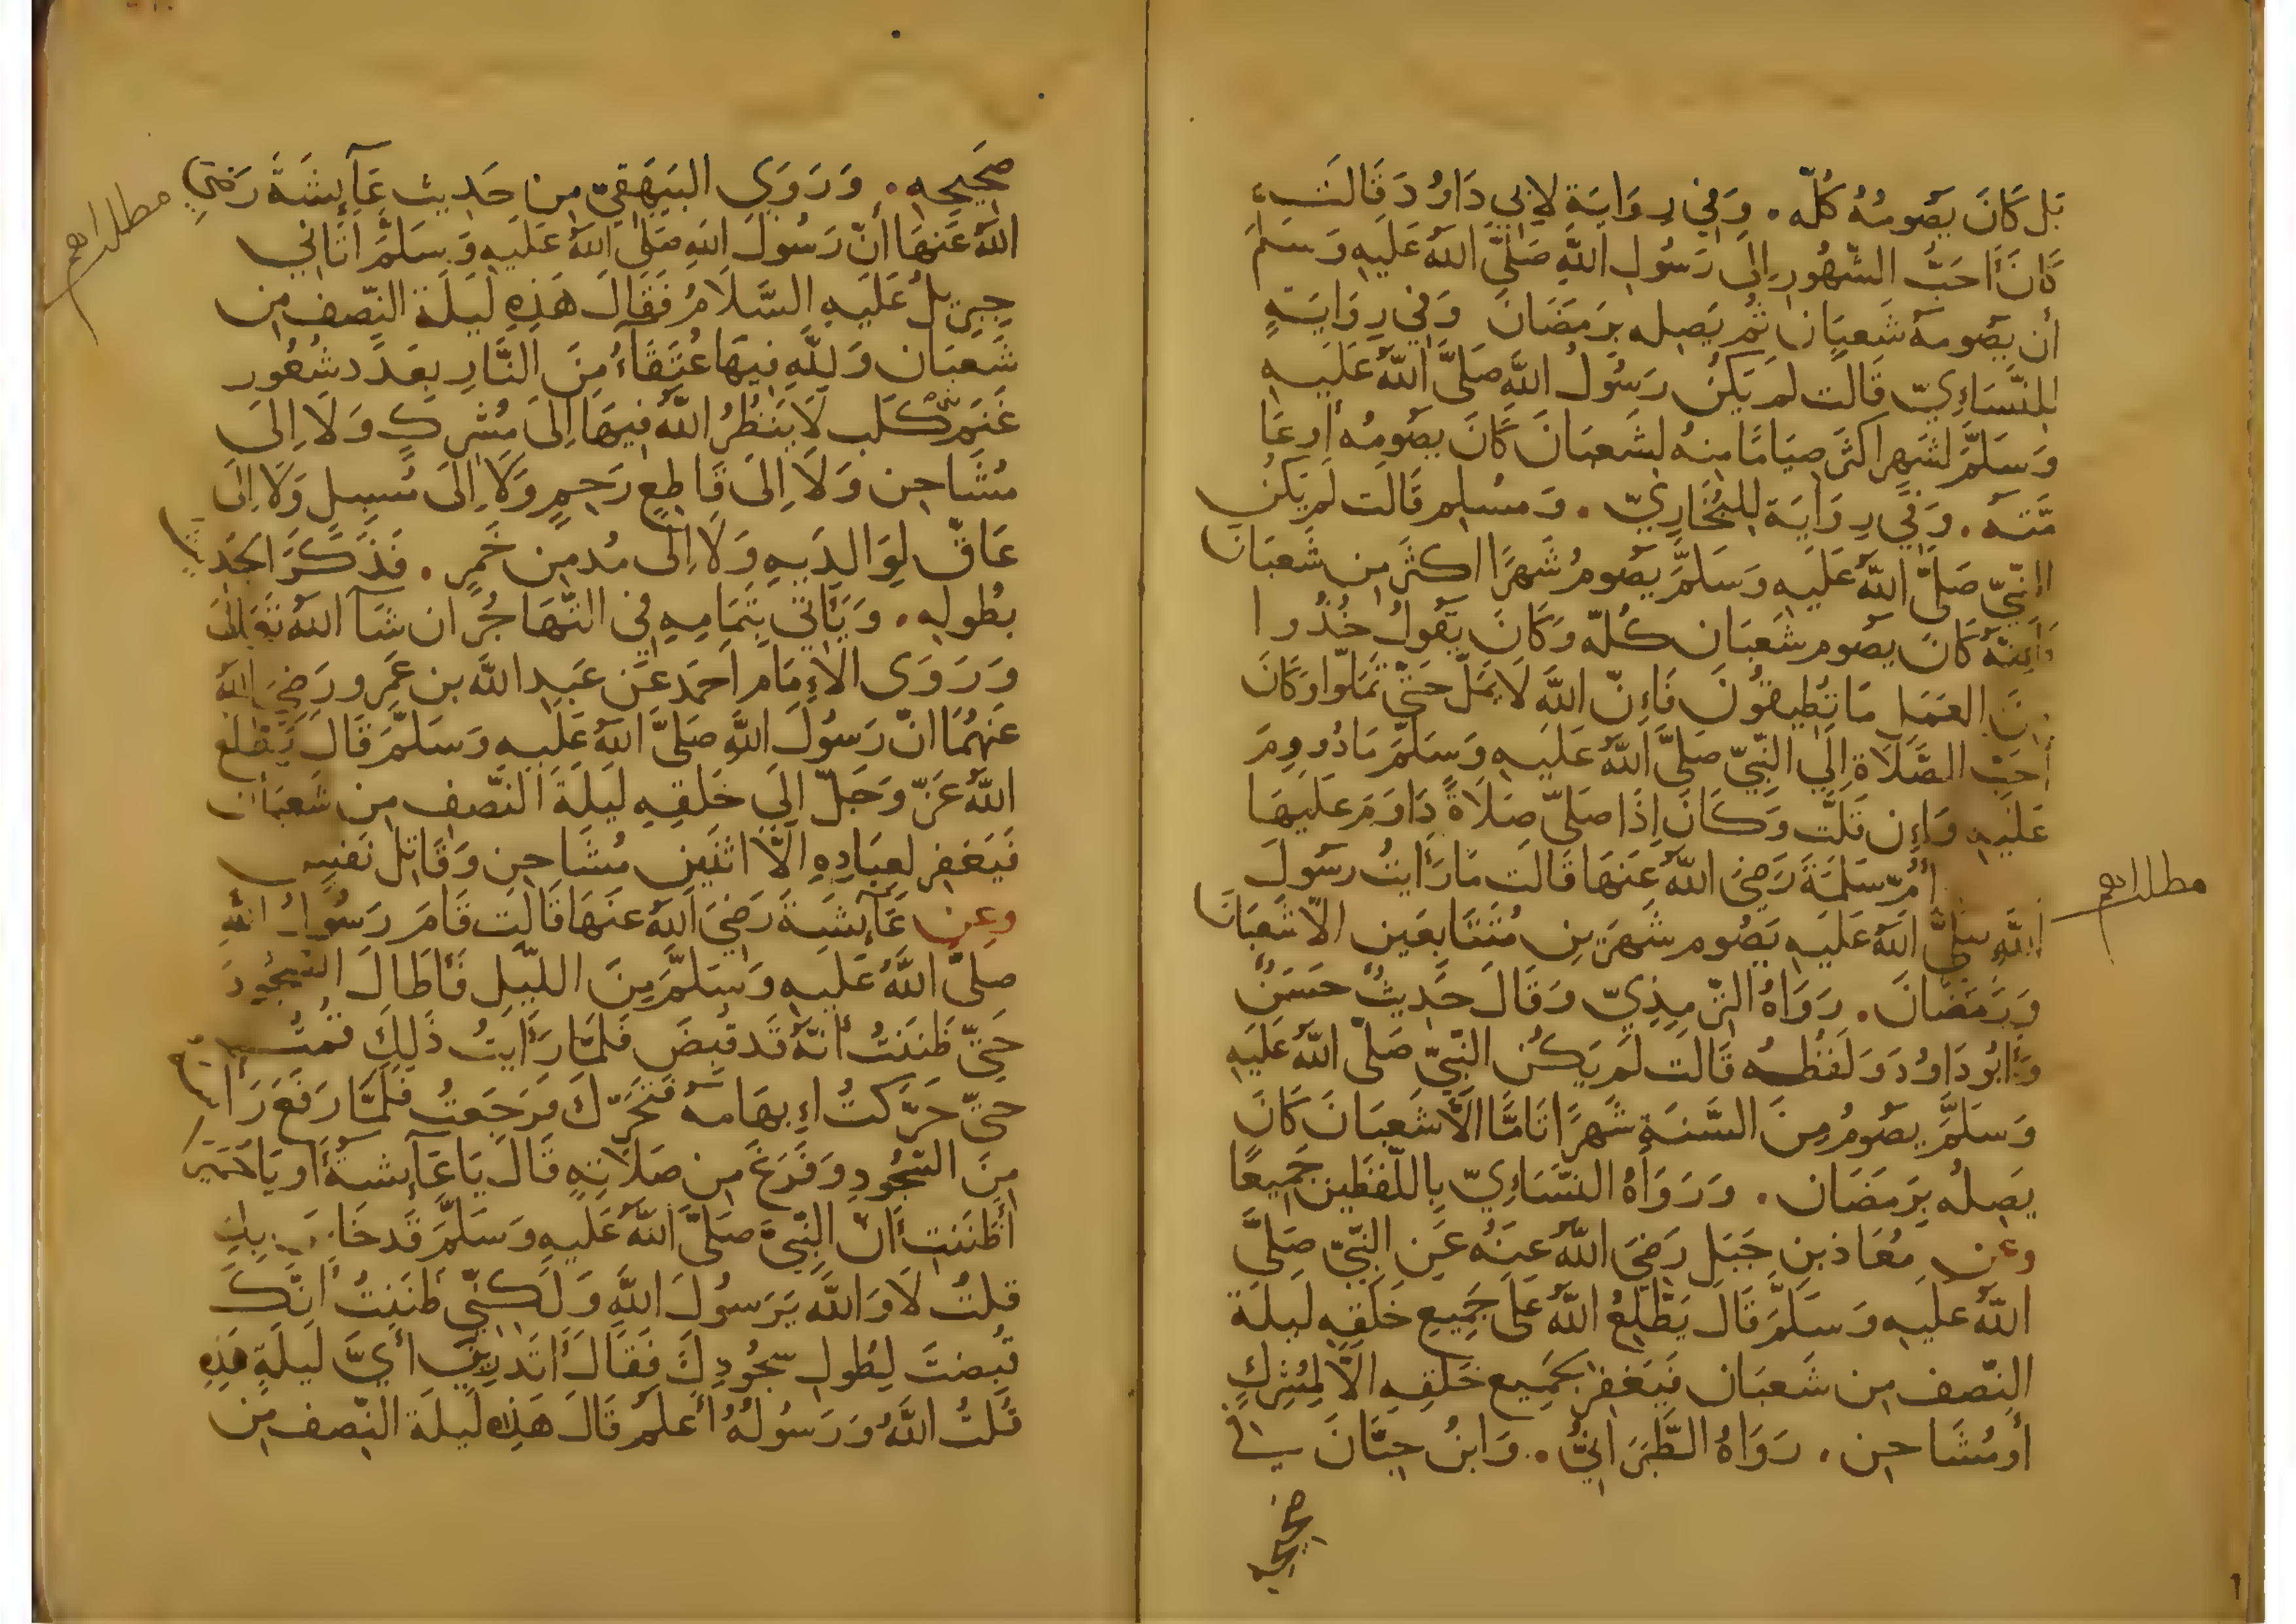 بَل كَانَ يَصُومُهُ كُلّه . وَفِي رِوَايَة لِابِي دَاوُدَ قَالَت
كَانَ أَحَبُّ الشّهُورِ إِلَى رَسُولِ اللَّهِ صَلَّى اللَّهُ عَلَيهِ وَسَلَّمَ
أَن يَصُومَهُ شَعبَان ثُم يَصِله بِرَمَضَانَ وَفِي رِوَايَةٍ
لِلنَّسَاءِيّ قَالَت لَم يَكُن رَسُولُ اللَّهِ صَلَّى اللَّهُ عَلَيهِ
وَسَلَّمَ لشَهرٍ اكثَر صِيَامًا مِنهُ لِشَعبَانَ كَانَ يَصُومُه أَو عَا
مَّتَه . وَفِي رِوَايَة لِلبُخَارِيّ . وَمُسلِم قَالَت لَم يَكُن
النّبيّ صَلَّى اللَّهُ عَلَيهِ وَسَلَّمَ يَصُومُ شَهرًا اكثَر مِن شَعبَانَ
فَاِنّهُ كَانَ يَصُوم شَعبَان كُلّه وَكَانَ يَقُولُ خُذُوا
مِنَ العَمَلِ مَا تُطِيقُونَ فَإِنّ اللَّه لَا يَمَلّ حَتّى تَمَلّوا وَكَانَ
أَحَبّ الصَّلَاة إِلَى النّبيّ صَلَّى اللَّهُ عَلَيهِ وَسَلَّمَ مَا دُووِمَ
عَلَيهِ وَإِن قَلَّت وَكَانَ إِذَا صَلَّى صَلَاةً دَاوَمَ عَلَيهَا
أُمّ سَلَمَةَ رَضِيَ اللَّهُ عَنهَا قَالَت مَا رَأَايتُ رَسُولَ
اللَّهِ صَلَّى اللَّهُ عَلَيهِ يَصُوم شَهرَينِ مُتَتَابِعَين الّا شَعبَانَ
وَرَمَضَانَ . رَوَاهُ التّرمِذِيّ وَقَالَ حَدِيثٌ حَسَنٌ
وَأَبُو دَاوُدَ وَلَفظُه قَالَت لَم يَكُن النّبيّ صَلَّى اللَّهُ عَلَيهِ
وَسَلَّمَ يَصُومُ مِنَ السَّنَةِ شَهرًا تَامًّا الّا شَعبَانَ كَانَ
يَصِلُه بِرَمَضَان . وَرَوَاهُ النّسَاءِيّ بِاللّفظَينِ جَمِيعًا
وعن مُعَاذ بنِ جَبَلٍ رَضِيَ اللَّهُ عَنهُ عَنِ النّبيّ صَلَّى
اللَّهُ عَلَيهِ وَسَلَّمَ قَالَ يَطّلِعُ اللَّهُ عَلَى جَمِيعِ خَلقِهِ لَيلَة
النّصف مِن شَعبَان فَيَغفِرُ لجَمِيع خَلقِهِ الّا لِمُشرِكٍ
أَو مُشَاحِن . رَوَاهُ الطَّبَرَانيُّ . وَابنُ حِبَّانَ في
صَحِيحِه
مطلب
صَحِيحِهِ . وَرَوَى البَيهَقِيّ مِن حَدِيث عَآئِشَةَ رَضِيَ
اللَّهُ عَنهَا أَنّ رَسُولَ اللَّهِ صَلَّى اللَّهُ عَلَيهِ وَسَلَّمَ أَتَانِي
جِبرِيلُ عَلَيهِ السَّلَامُ فَقَالَ هَذِهِ لَيلَة النّصفِ مِن
شَعبَان وَلِلَّهِ فِيهَا عُتَقَآءُ مِنَ النَّارِ بِعَدَد شُعُورِ
غَنَم كَلب لَا يَنظُرُ اللَّهُ فِيهَا إِلَى مُشرِكٍ وَلَا إِلَى
مُشَاحِن وَلَا إِلَى قَاطِعِ رَحِمٍ وَلَا إِلَى مُسبِلٍ وَلَا إِلَى
عَاقّ لِوَالِدَيهِ وَلَا إِلَى مُدمِن خَمرٍ . فَذَكَرَ الحَدِيث
بِطُولِهِ . وَيَأتي بِتَمَامِهِ فِي التّهَاجُر ان شَآ اللَّه تَعَالَى
وَرَوَى الإِمَام أَحمَد عَن عَبدِ اللَّه بن عَمرو رَضِيَ اللَّه
عَنهُمَا انّ رَسُولَ اللَّهِ صَلَّى اللَّهُ عَلَيهِ وَسَلَّمَ قَالَ يَطَّلِع
اللَّهُ عَزّ وَجَلّ إِلَى خَلقِهِ لَيلَةَ النّصفِ مِن شَعبَان
فَيَغفِر لِعِبَادِهِ الّا اثنَينِ مُشَاحِن وَقَاتِل نَفس
وعن عَآئِشَةَ رَضِيَ اللَّهُ عَنهَا قَالَت قَامَ رَسُولُ اللَّهِ
صَلَّى اللَّهُ عَلَيهِ وَسَلَّمَ مِنَ اللّيلِ فَأَطَالَ السُّجُودَ
حَتّى ظَنَنتُ أَنّهُ قَد قُبِضَ فَلَمَّا رَأَيتُ ذَلِكَ قُمتُ
حَتّى حَرَّكتُ إِبهَامَهُ فَتَحَرّكَ فَرَجَعتُ فَلَمَّا رَفَعَ رَاسَه
مِنَ السُّجُودِ وَفَرَغَ مِن صَلَاتِهِ قَالَ يَا عَآئِشَةُ أَو يَا حُمَيرَا
أَظَنَنتِ أَنّ النّبيّ صَلَّى اللَّهُ عَلَيهِ وَسَلَّمَ قَد خَاسَ بِكِ
قُلتُ لَا وَاللَّه يَرَسُولَ اللَّهِ وَلَكِنّي ظَنَنتُ أَنّكَ
قُبِضتَ لِطُولِ سُجُودِكَ فَقَالَ أَتَدرِينَ أَيَّ لَيلَةٍ هَذِهِ
قُلتُ اللَّهُ وَرَسُولُهُ أَعلَم قَالَ هَذِه لَيلَة النّصف مِن
مطلب